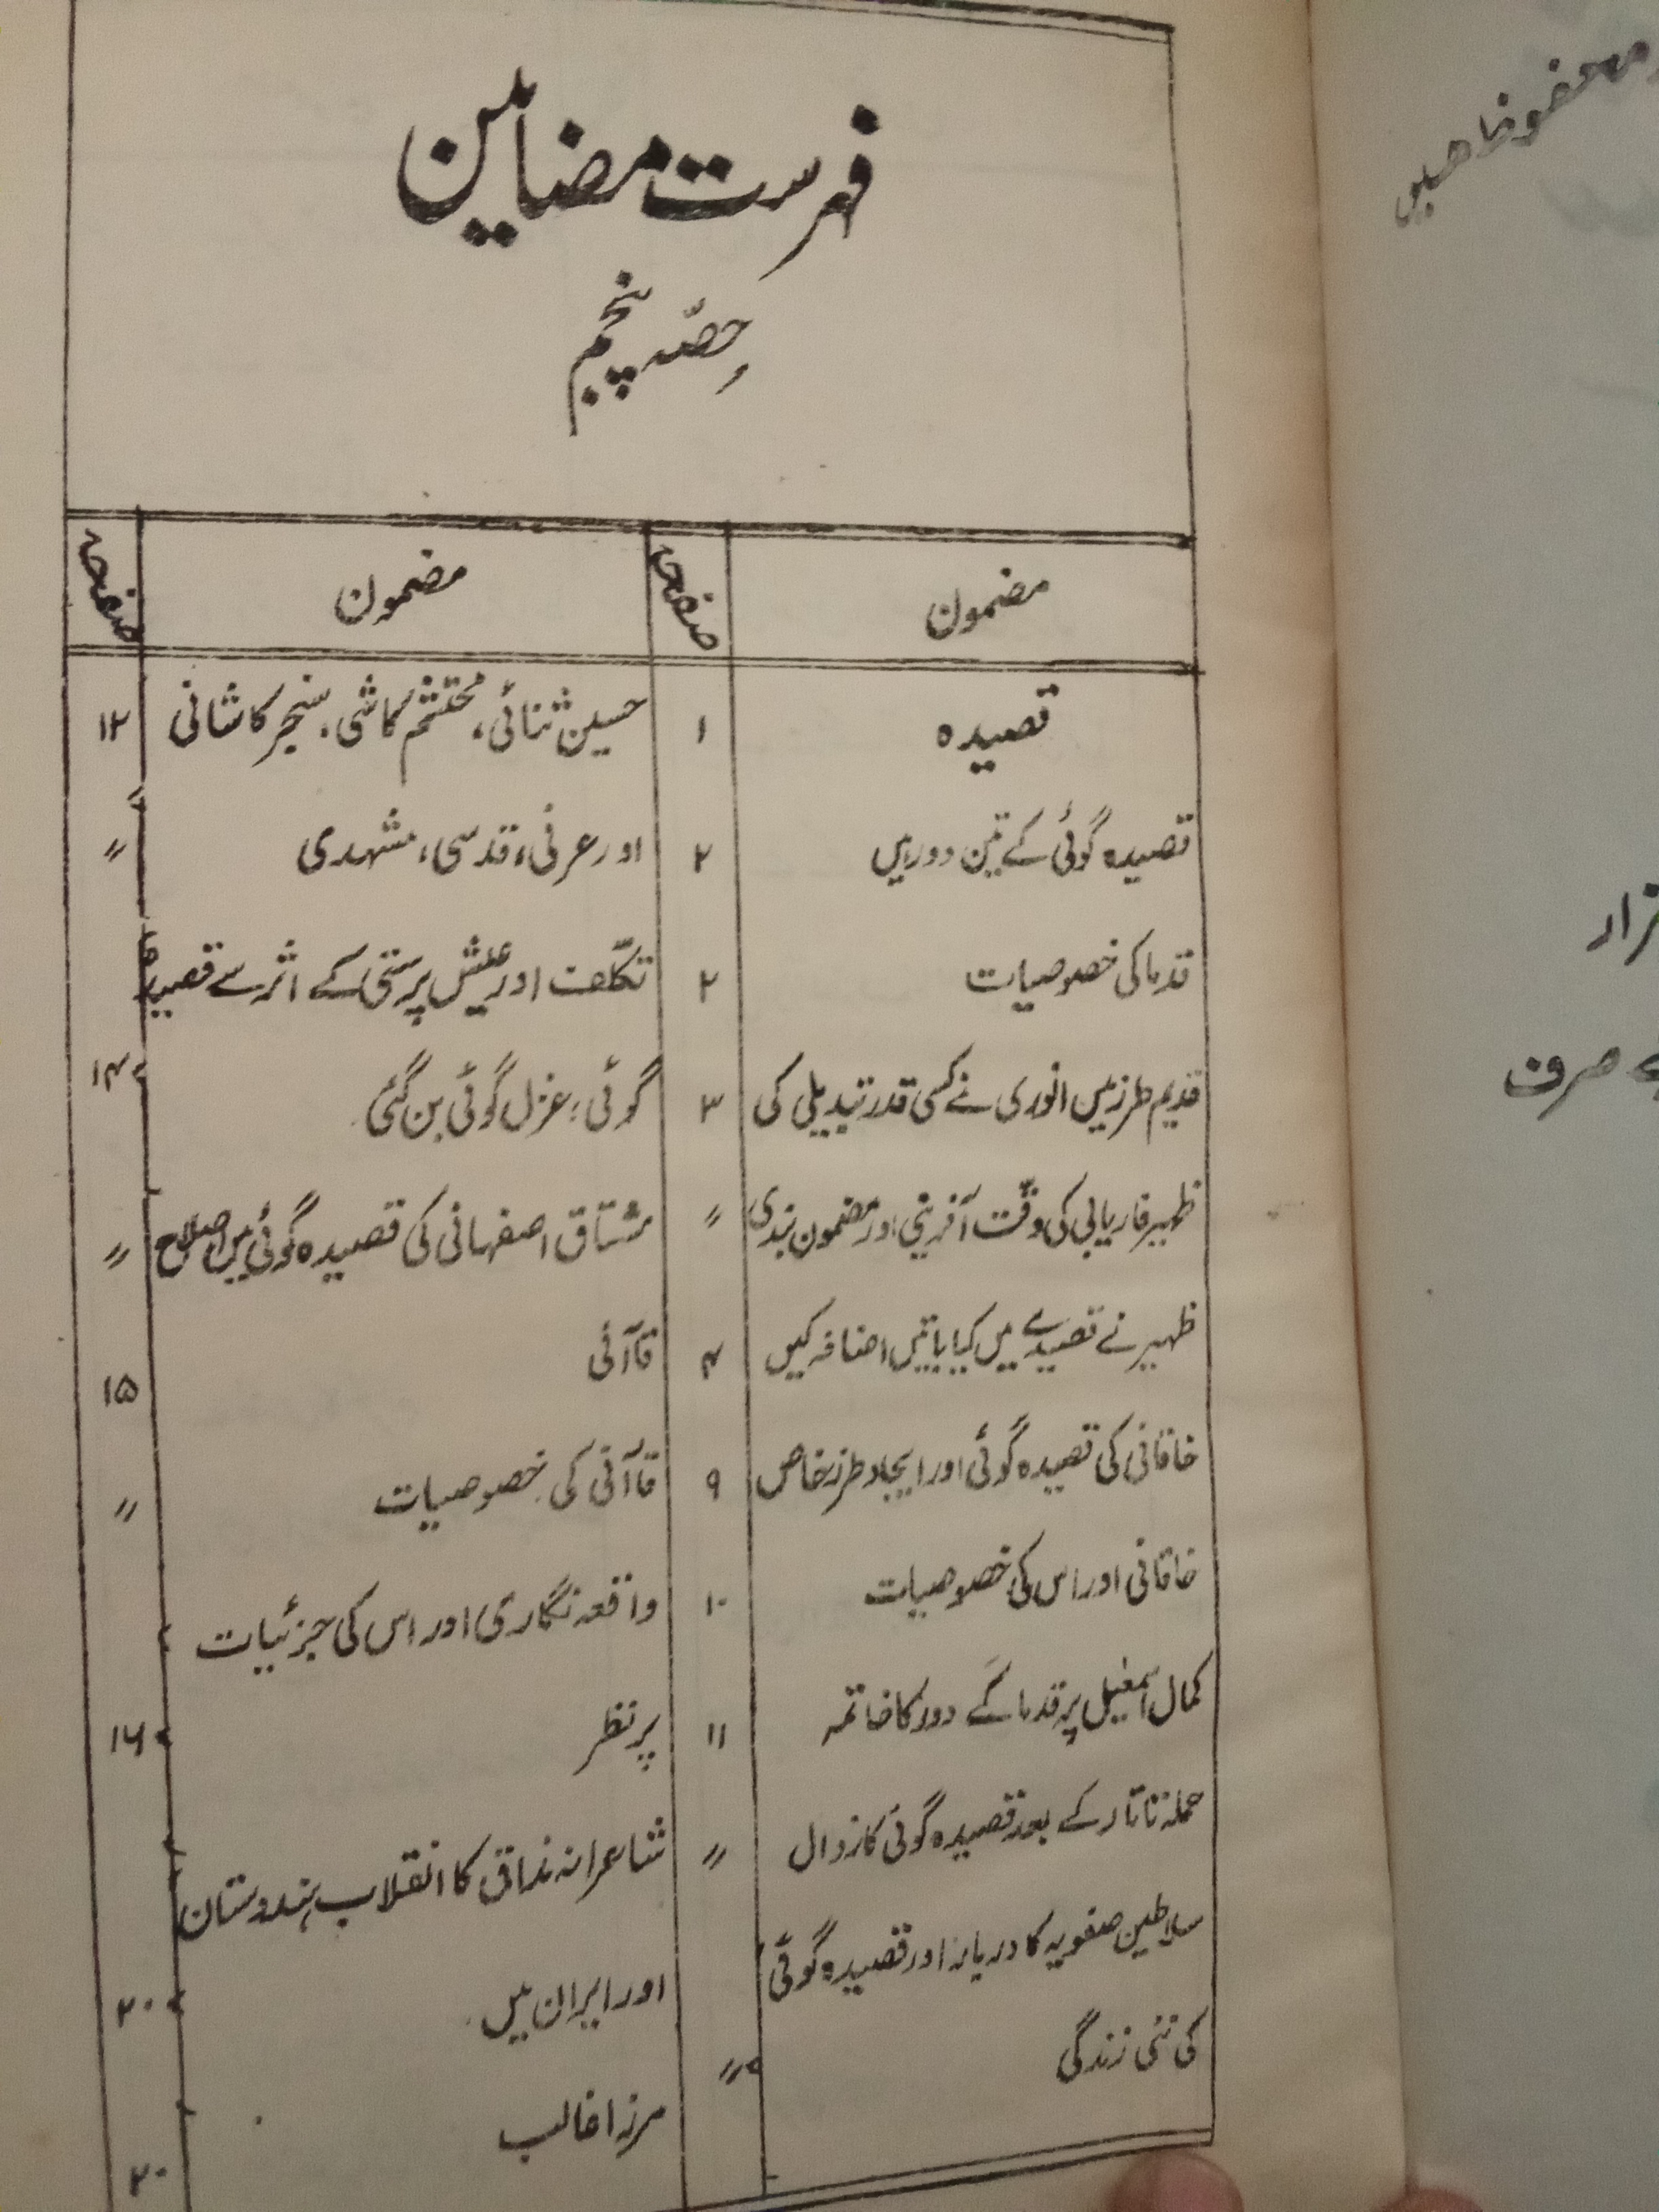 فہرست مضامین
حصّہ پنجم
مضمون
صفحہ
قصیدہ
۱
قصیدہ گوئی کے تین دور ہیں
۲
قدما کی خصوصیات
۲
قدیم طرز میں انوری نے کسی قدر تبدیلی کی
۳
ظہیر فاریابی کی دقّت آفرینی اور مضمون بندی
〃
ظہیر نے قصیدے میں کیا باتیں اضافہ کیں
۴
خاقانی کی قصیدہ گوئی اور ایجاد طرز خاص
۹
خاقانی اور اس کی خصوصیات
۱۰
کمال اسمٰعیل پر قدما کے دور کا خاتمہ
۱۱
حملۂ تاتار کے بعد قصیدہ گوئی کا زوال
〃
سلاطین صفویہ کا دربار اور قصیدہ گوئی
کی نئی زندگی
〃
مضمون
صفحہ
حسین ثنائی، محتشم کاشی، سنجر کاشانی
۱۲
اور عرفی، قدسی، مشہدی
〃
تکلّف اور عیش پرستی کے اثر سے قصیدہ
گوئی؛ غزل گوئی بن گئی
۱۴
مشتاق اصفہانی کی قصیدہ گوئی میں اصلاح
〃
قاآنی
۱۵
قاآنی کی خصوصیات
〃
واقعہ نگاری اور اس کی جزئیات
پر نظر
۱۶
شاعرانہ مذاق کا انقلاب ہندوستان
اور ایران میں
۲۰
مرزا غالب
۲۰
صرف